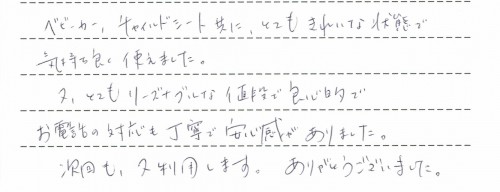 ベビーカー，チャイルドシート共に，とても きれいな状態で
気持ち良く使えました。
又，とてもリーズナブルな値段で良心的で
お電話の対応も丁寧で安心感がありました。
次回も，又利用します。 ありがとうございました。